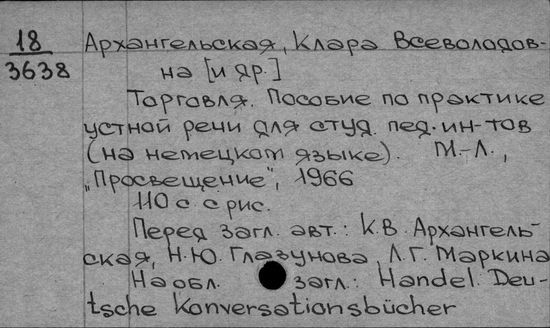 18
3638
Архангельская, Клара Всеволодов-
на [и др.]
Торговля. Пособие по практике
устной речи для студ. пед. ин-тов
(на немецком языке). М.-Л.,
„Просвещение", 1966
110 с. с рис.
Перед загл. авт.: К.В. Архангель-
ская, Н.Ю. Глазунова, Л.Г. Маркина
На обл. загл.: Handel. Deu-
tsche Konversationsbücher